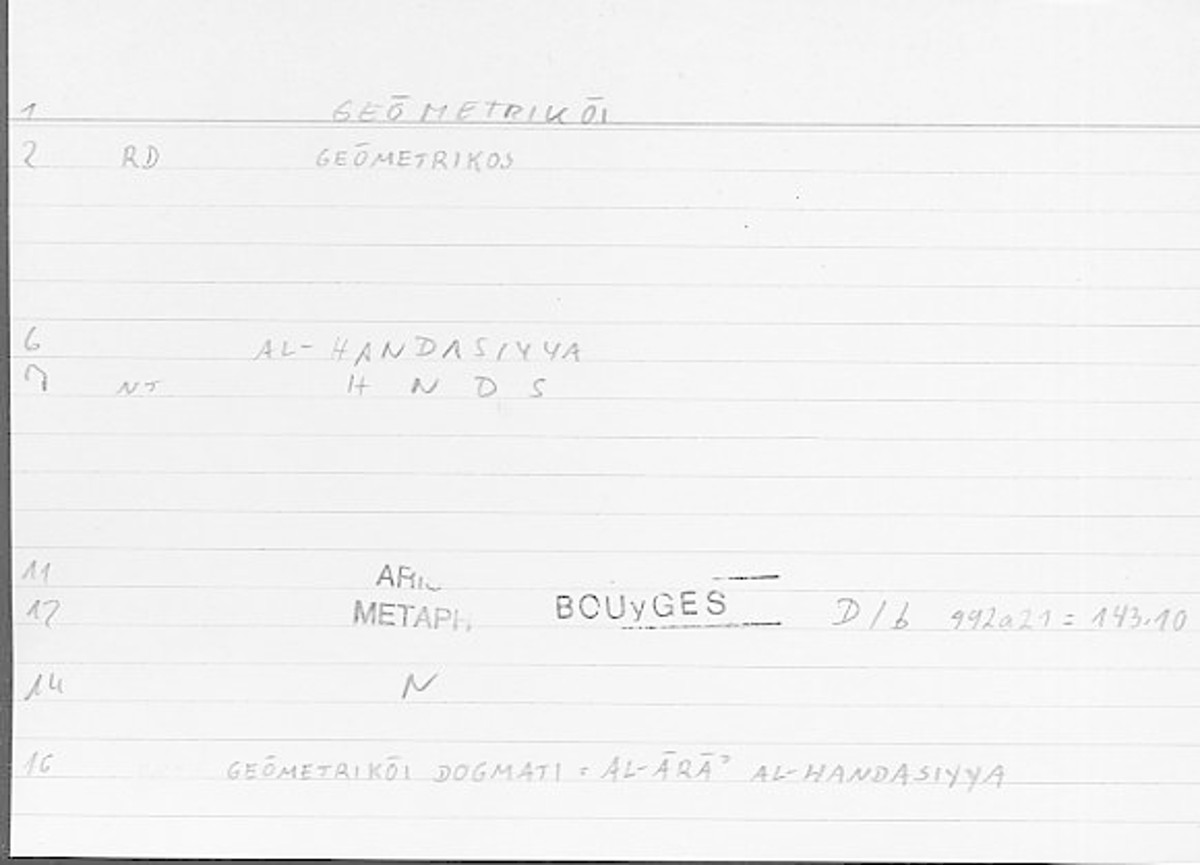 1 GEŌMETRIKŌI
2 RD GEŌMETRIKOS
6 AL-HANDASIYYA
7 NT H N D S
11
12 METAPH. BOUyGES D/b 992a21 = 143.10
14 N
16 GEŌMETRIKŌI DOGMATI = AL-ĀRĀʾ AL-HANDASIYYA